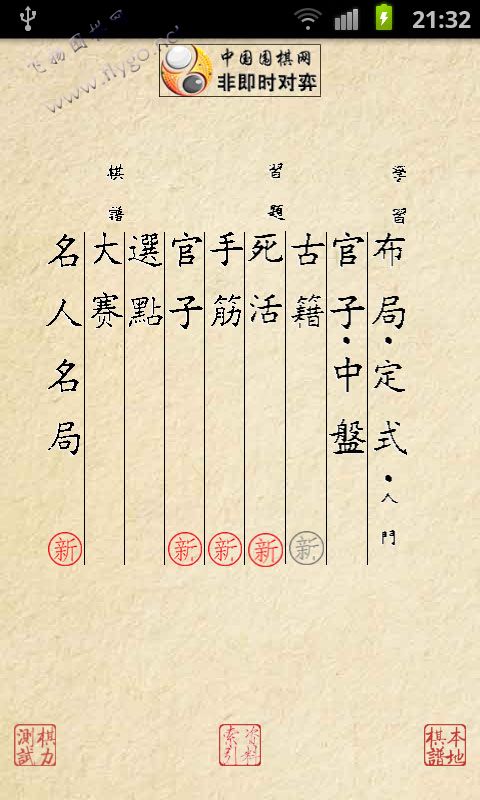 21:32
飞扬围棋网
www.flygo.net
中国围棋网
非即时对弈
學習
習題
棋譜
布局·定式·入門
官子·中盤
古籍
死活
手筋
官子
選點
大赛
名人名局
新
新
新
新
新
本地棋譜
资料索引
棋力測試